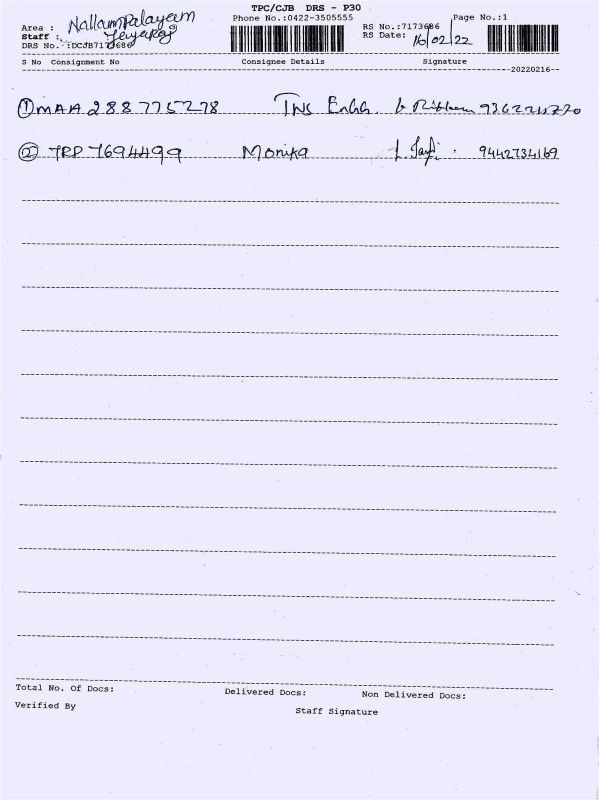 TPC/CJB DRS - P30
Area : Nallampalayam Phone No.:0422-3505555 RS No.:7173686 Page No.:1
Staff : Jeyaraj RS Date: 16/02/22
DRS No. :DCJB7173686
S No Consignment No Consignee Details Signature
20220216
① MAA 288775278 TNS
② TRP 7694499 Monika 9442734169
Total No. Of Docs: Delivered Docs: Non Delivered Docs:
Verified By Staff Signature